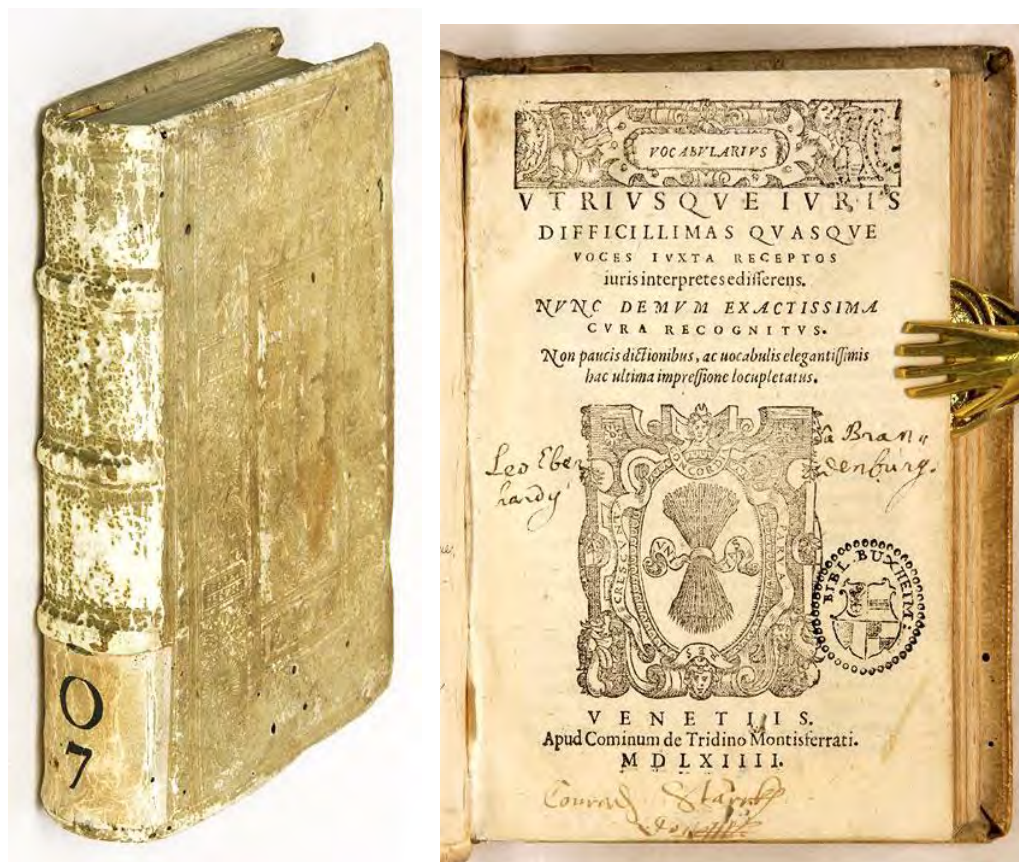 O
7
VOCABVLARIVS
VTRIVSQVE IVRIS
DIFFICILLIMAS QVASQVE
VOCES IVXTA RECEPTOS
iuris interpretes edisserens.
NVNC DEMVM EXACTISSIMA
CVRA RECOGNITVS.
Non paucis dictionibus, ac uocabulis elegantissimis
hac ultima impressione locupletatus.
Leo Eber
hardy
à Bran
denburg.
CONCORDIA
PARVAE
CRESCVNT
BIBL. BUXHEIM:
VENETIIS.
Apud Cominum de Tridino Montisferrati.
MDLXIIII.